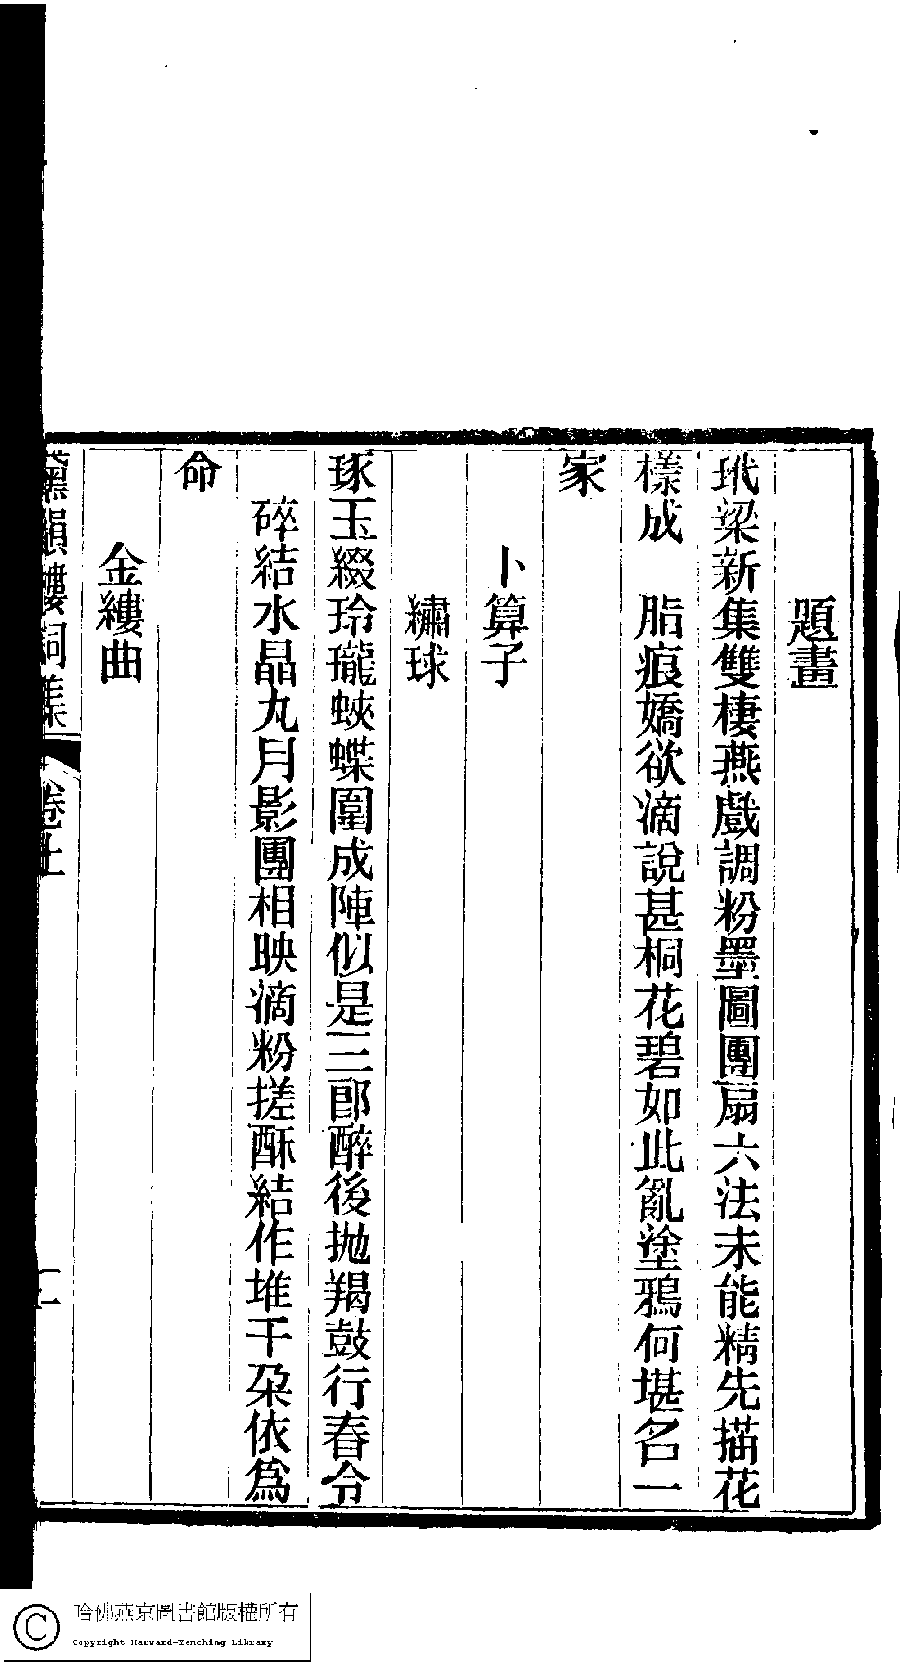 題畫
玳梁新集雙棲燕戲調粉墨圖團扇六法未能精先描花
樣成　脂痕嬌欲滴說甚桐花碧如此亂塗鴉何堪名一
家
卜算子
繡球
琢玉綴玲瓏蛺蝶圍成陣似是三郎醉後拋羯鼓行春令
碎結水晶丸月影團相映滴粉搓酥結作堆千朶依爲
命
金縷曲
黛韻樓詞集
卷上
二
哈佛燕京圖書館版權所有
Copyright Harvard-Yenching Library